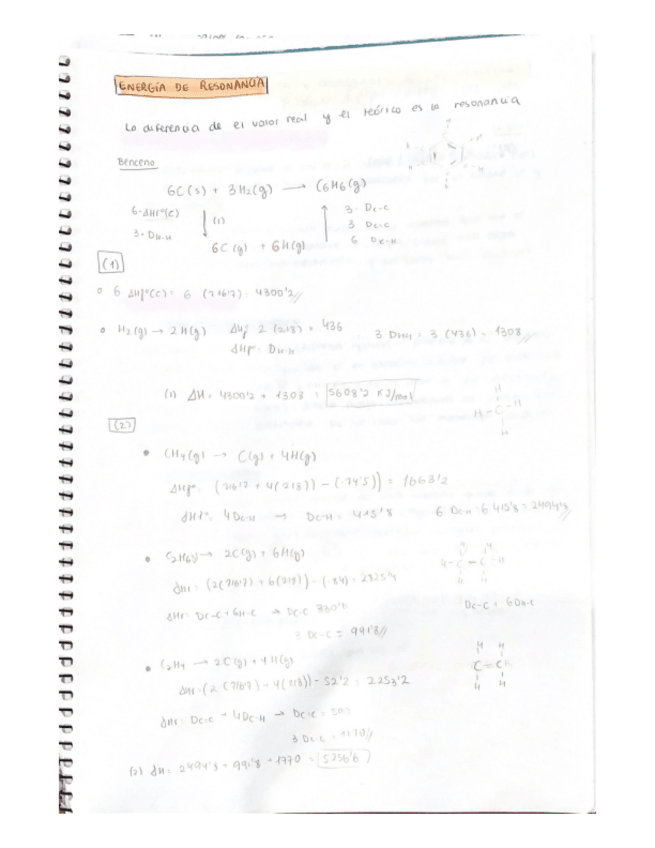 ENERGÍA DE RESONANCIA
La diferencia de el valor real y el teórico es la resonancia
Benceno
6C(s) + 3H2(g) → C6H6(g)
6·ΔHfº(C)
3·DH-H
(1)
3·DC-C
3 DC=C
6 DC-H
6C(g) + 6H(g)
(1)
6 ΔHfº(C) = 6 (716'7) = 4300'2//
H2(g) → 2H(g) ΔHfº 2(218) = 436
3 DH-H = 3(436) = 1308//
ΔHfº = DH-H
(1) ΔH = 4300'2 + 1308 = 5608'2 KJ/mol
(2)
CH4(g) → C(g) + 4H(g)
ΔHfº = (716'7 + 4(218)) - (-74'5)) = 1663'2
ΔHfº = 4DC-H → DC-H = 415'8
6 DC-H = 6·415'8 = 2494'8//
C2H6 → 2C(g) + 6H(g)
ΔHr = (2(716'7) + 6(218)) - (-84) = 2825'4
ΔHr = DC-C + 6H-C → DC-C 330'6
DC-C + 6DH-C
3 DC-C = 991'8//
C2H4 → 2C(g) + 4H(g)
ΔHr = (2(716'7) + 4(218)) - 52'2 = 2253'2
ΔHr = DC=C + 4DC-H → DC=C = 590
3 DC=C = 1770//
(2) ΔH = 2494'8 + 991'8 + 1770 = 5256'6